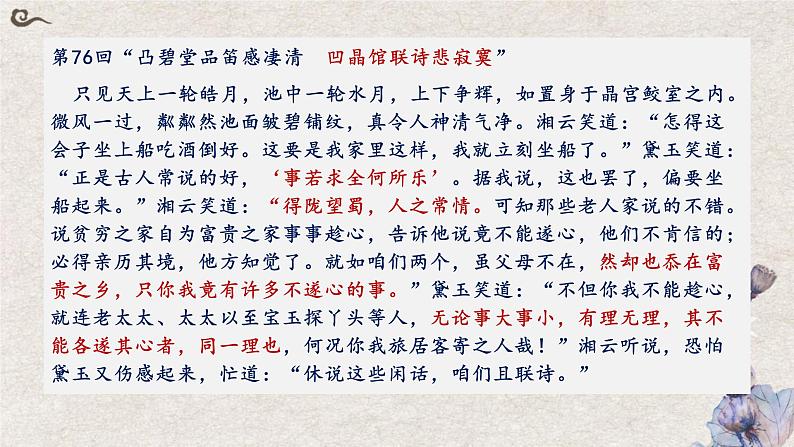 第76回“凸碧堂品笛感凄清　凹晶馆联诗悲寂寞”
只见天上一轮皓月，池中一轮水月，上下争辉，如置身于晶宫鲛室之内。
微风一过，粼粼然池面皱碧铺纹，真令人神清气净。湘云笑道：“怎得这
会子坐上船吃酒倒好。这要是我家里这样，我就立刻坐船了。”黛玉笑道：
“正是古人常说的好，‘事若求全何所乐’。据我说，这也罢了，偏要坐
船起来。”湘云笑道：“得陇望蜀，人之常情。可知那些老人家说的不错。
说贫穷之家自为富贵之家事事趁心，告诉他说竟不能遂心，他们不肯信的；
必得亲历其境，他方知觉了。就如咱们两个，虽父母不在，然却也忝在富
贵之乡，只你我竟有许多不遂心的事。”黛玉笑道：“不但你我不能趁心，
就连老太太、太太以至宝玉探丫头等人，无论事大事小，有理无理，其不
能各遂其心者，同一理也，何况你我旅居客寄之人哉！”湘云听说，恐怕
黛玉又伤感起来，忙道：“休说这些闲话，咱们且联诗。”